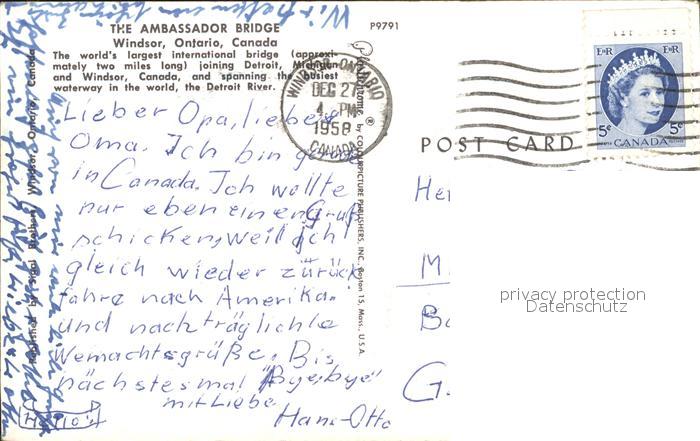 THE AMBASSADOR BRIDGE
Windsor, Ontario, Canada
The world's largest international bridge (approxi-
mately two miles long) joining Detroit, Michigan
and Windsor, Canada, and spanning the busiest
waterway in the world, the Detroit River.
P9791
WINDSOR ONTARIO
DEC 27
4 PM
1958
CANADA
5¢ 5¢
CANADA
POST CARD
Lieber Opa, liebe
Oma. Ich bin gerade
in Canada. Ich wollte
nur eben einen Gruß
schicken, weil ich
gleich wieder zurück
fahre nach Amerika.
und nachträglichle
Weinachtsgrüße. Bis
nächstesmal "Bye, bye"
mit Liebe
Hans-Otto
Plastichrome ® by COLOURPICTURE PUBLISHERS, INC., Boston 15, Mass., U.S.A.
Published by Sigal Brothers, Windsor, Ontario, Canada
Wir
Her
M
B
G.
privacy protection
Datenschutz